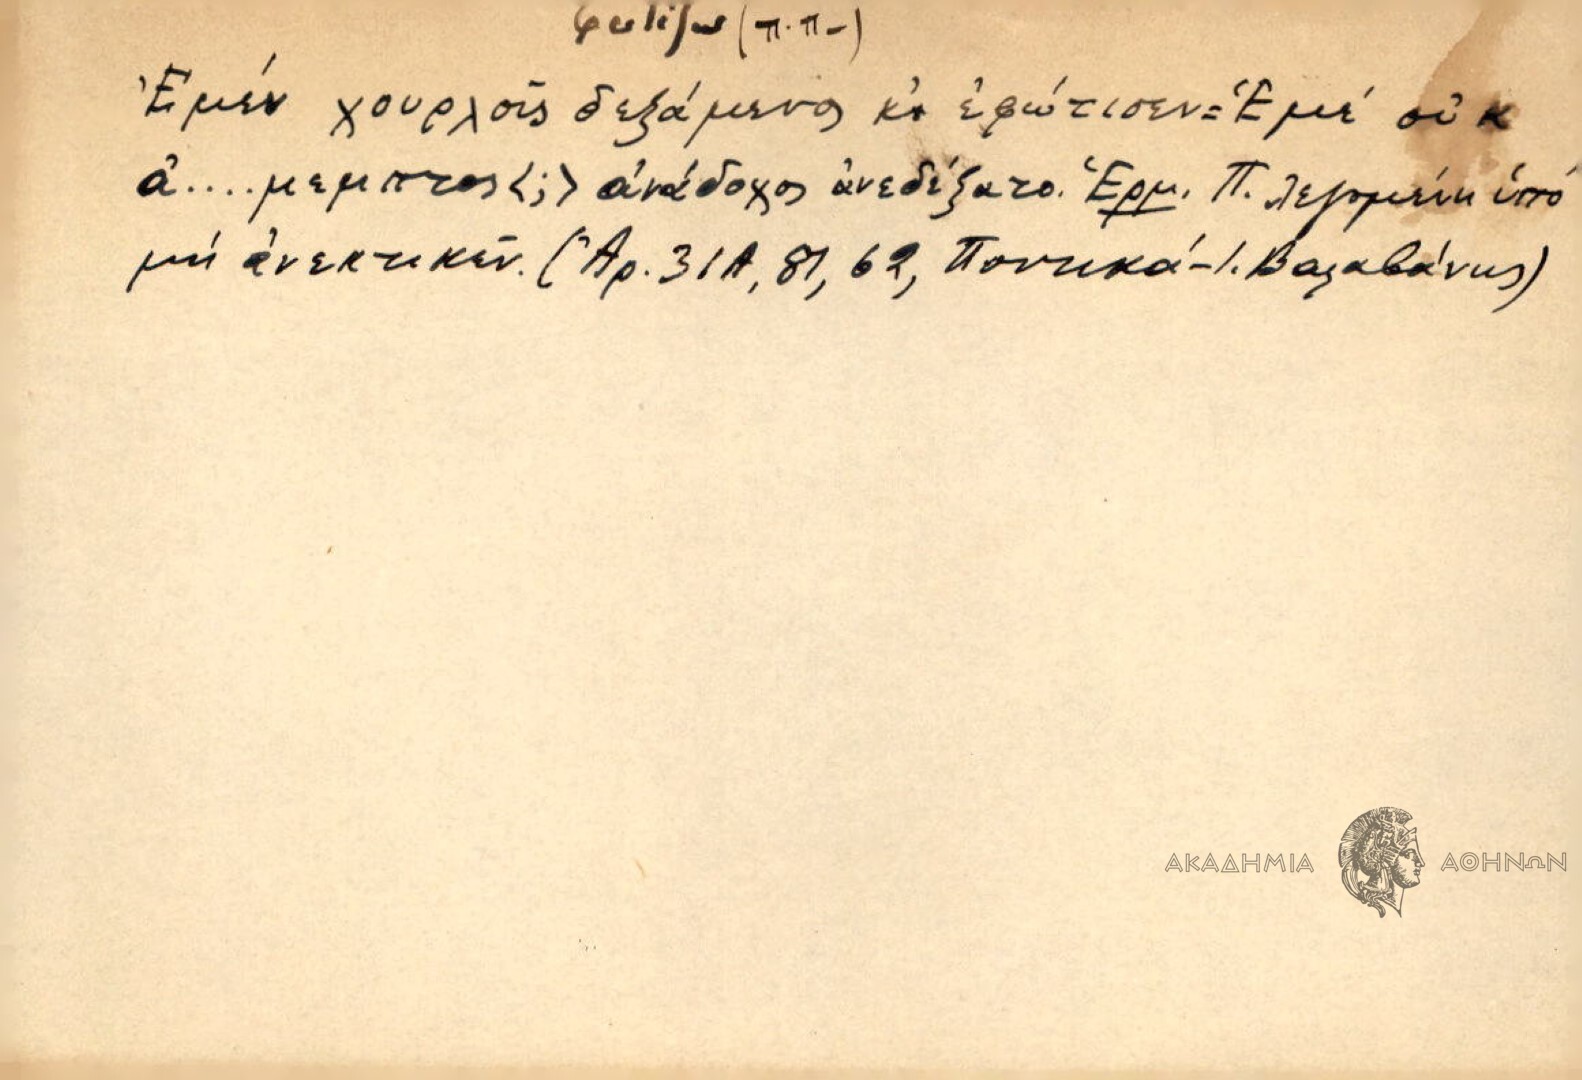 φωτίζω (π.π-)
Ἐμέν χουρλοῖς δεξάμενος κι ἐφώτισεν = Ἐμέ οὐκ
ἀ....μεμπτος <;> ἀνάδοχος ἀνεδέξατο. Ἑρμ. Π. λεγομένη ὑπό
μή ἀνεκτικῶν. (Ἀρ. 31Α, 81, 62, Ποντικά - Ι. Βαλαβάνης)
ΑΚΑΔΗΜΙΑ ΑΘΗΝΩΝ